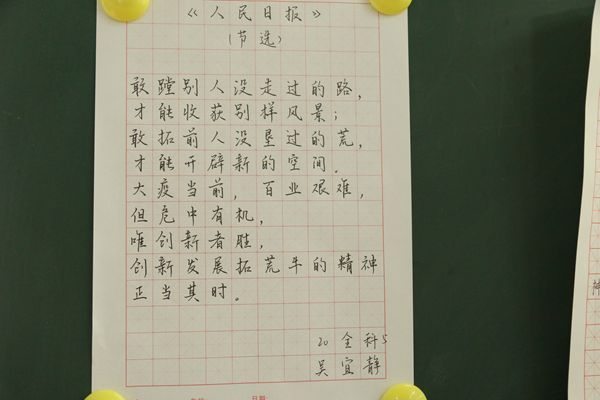 《人民日报》
(节选)
敢蹚别人没走过的路，
才能收获别样风景；
敢拓前人没垦过的荒，
才能开辟新的空间。
大疫当前，百业艰难，
但危中有机，
唯创新者胜，
创新发展拓荒牛的精神
正当其时。
20全科5
吴宜静
日期: